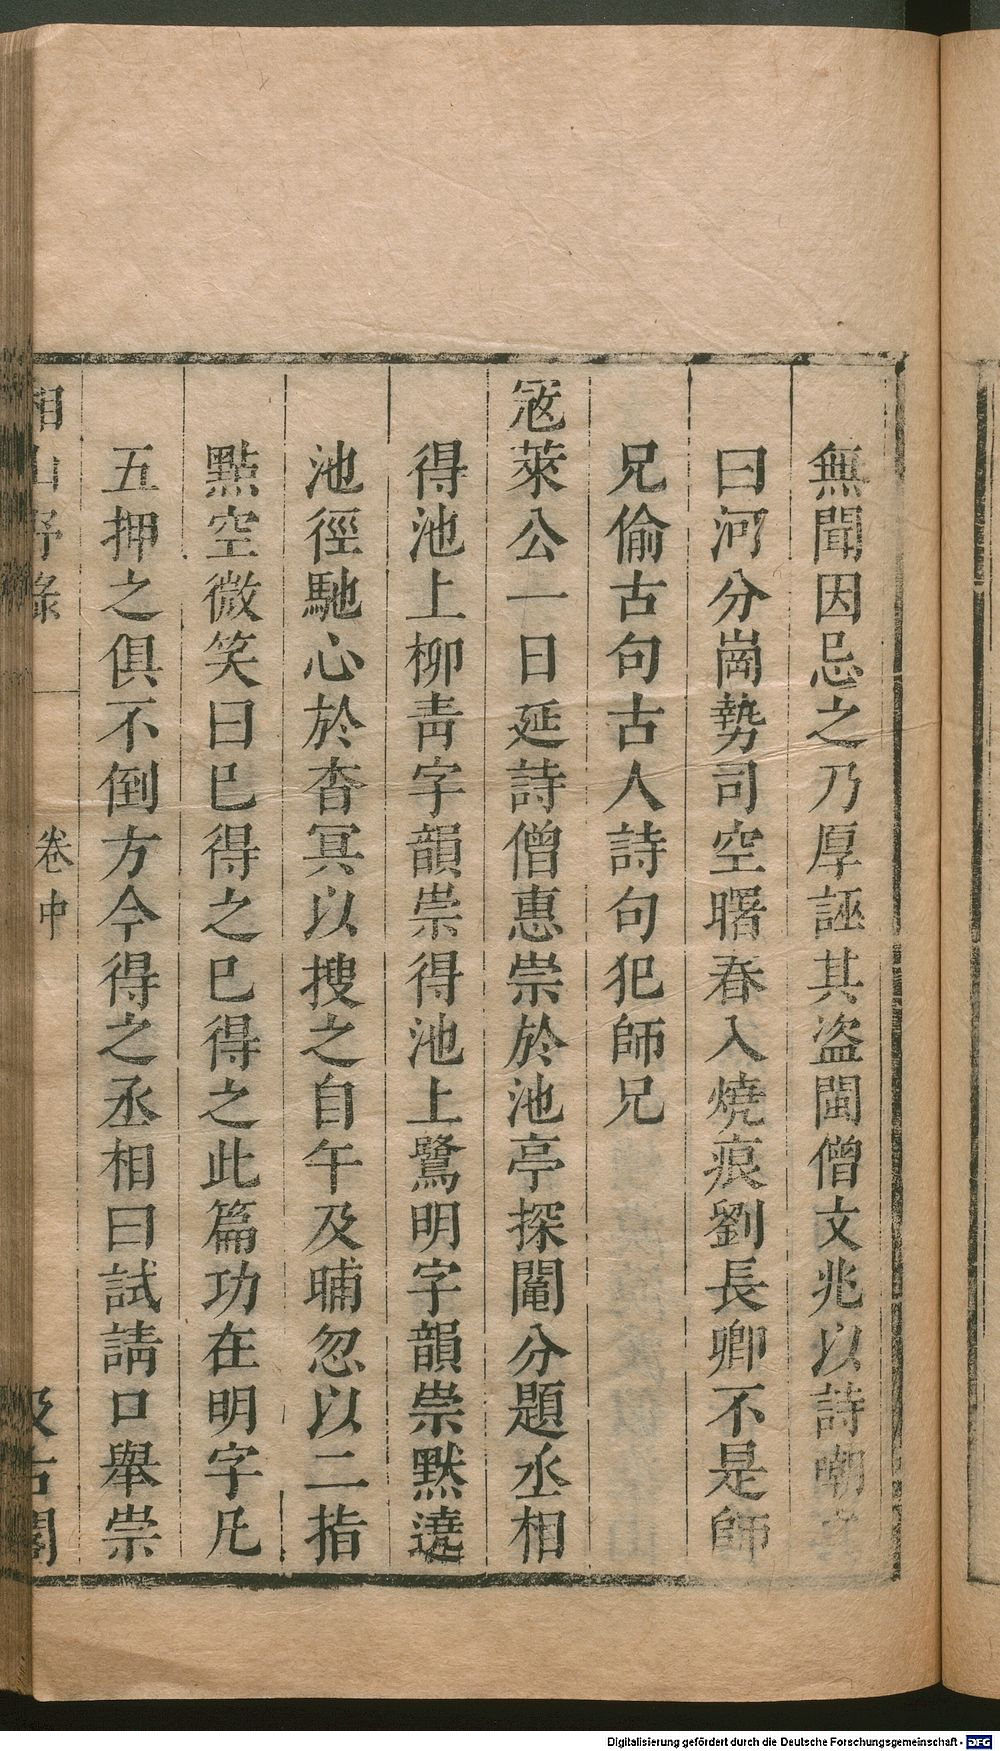 無聞因忌之乃厚誣其盜閩僧文兆以詩嘲之
曰河分崗勢司空曙春入燒痕劉長卿不是師
兄偷古句古人詩句犯師兄
寇萊公一日延詩僧惠崇於池亭探鬮分題丞相
得池上柳青字韻崇得池上鷺明字韻崇默遶
池徑馳心於杳冥以搜之自午及晡忽以二指
點空微笑曰已得之已得之此篇功在明字凡
五押之俱不倒方今得之丞相曰試請口舉崇
湘山野錄 卷中 汲古閣
Digitalisierung gefördert durch die Deutsche Forschungsgemeinschaft - DFG